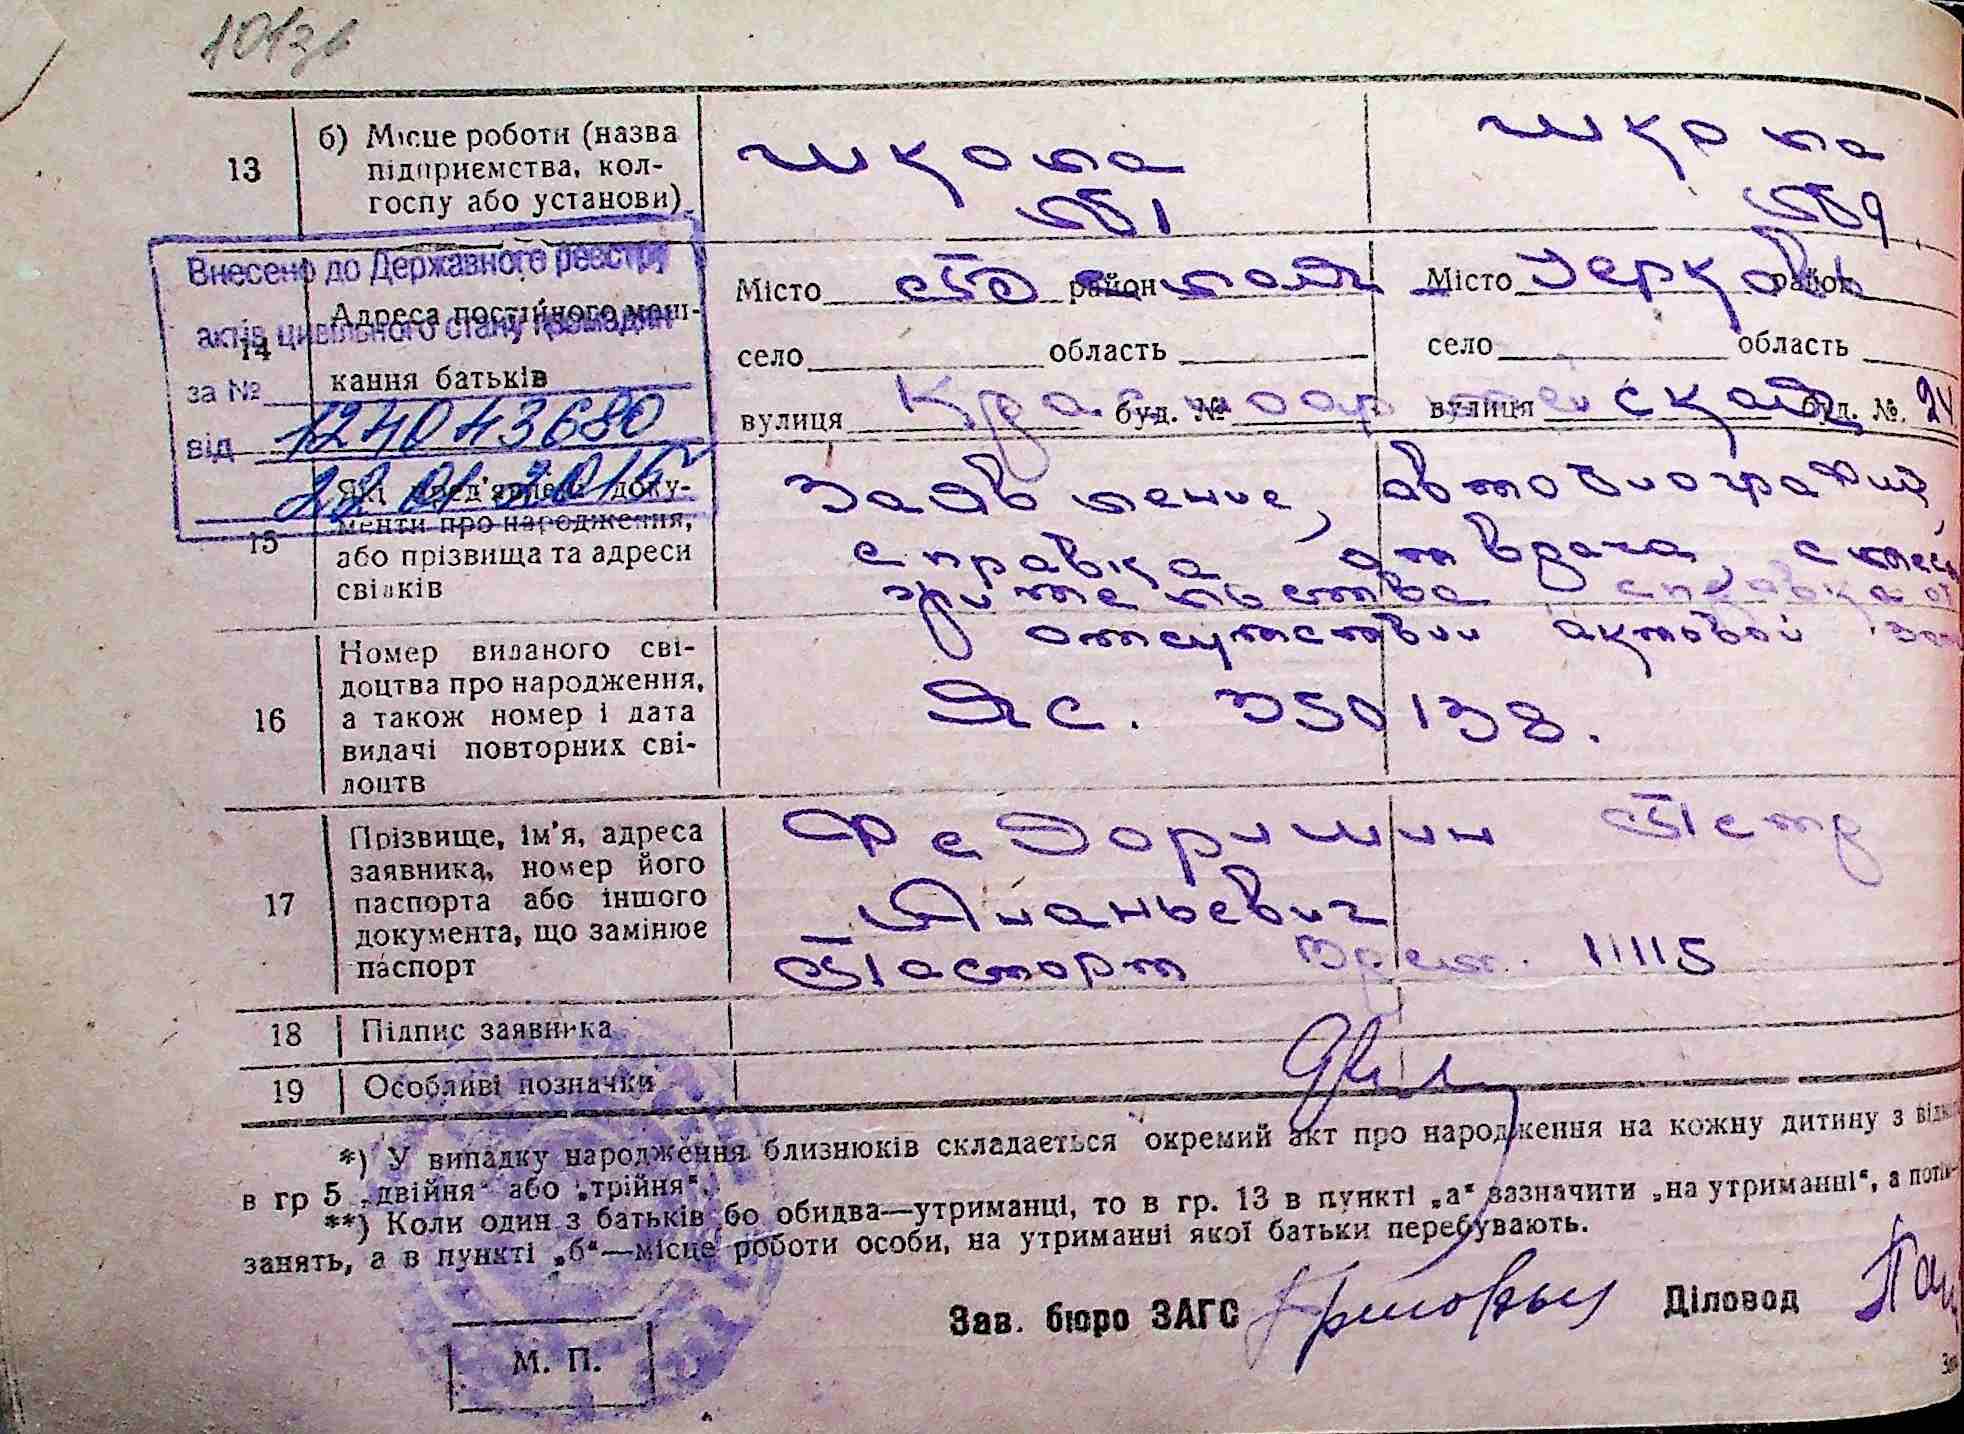 101зв
13
б) Місце роботи (назва
підприємства, кол-
госпу або установи)
школа
№1
школа
№9
Внесено до Державного реєстру
актів цивільного стану громадян
за №
124043680
від
22 01 2015
14
Адреса постійного меш-
кання батьків
Місто район
село область
вулиця Красноармейская буд. №
Місто Церковь район
село область
вулиця буд. № 24
15
Які пред'явлені доку-
менти про народження,
або прізвища та адреси
свідків
Заявление, автобиография,
справка от врача, свидет
справка от
отсутствии актовой зап
16
Номер виданого сві-
доцтва про народження,
а також номер і дата
видачі повторних сві-
доцтв
ЯС. 350138.
17
Прізвище, ім'я, адреса
заявника, номер його
паспорта або іншого
документа, що замінює
паспорт
Федоришин Петр
Ананьевич
Паспорт Врем. 11115
18 Підпис заявника
19 Особливі позначки
*) У випадку народження близнюків складається окремий акт про народження на кожну дитину з відм
в гр 5 „двійня“ або „трійня“.
**) Коли один з батьків бо обидва—утриманці, то в гр. 13 в пункті „а“ зазначити „на утриманні“, а потім
занять, а в пункті „б“—місце роботи особи, на утриманні якої батьки перебувають.
Зав. бюро ЗАГС Діловод
М. П.